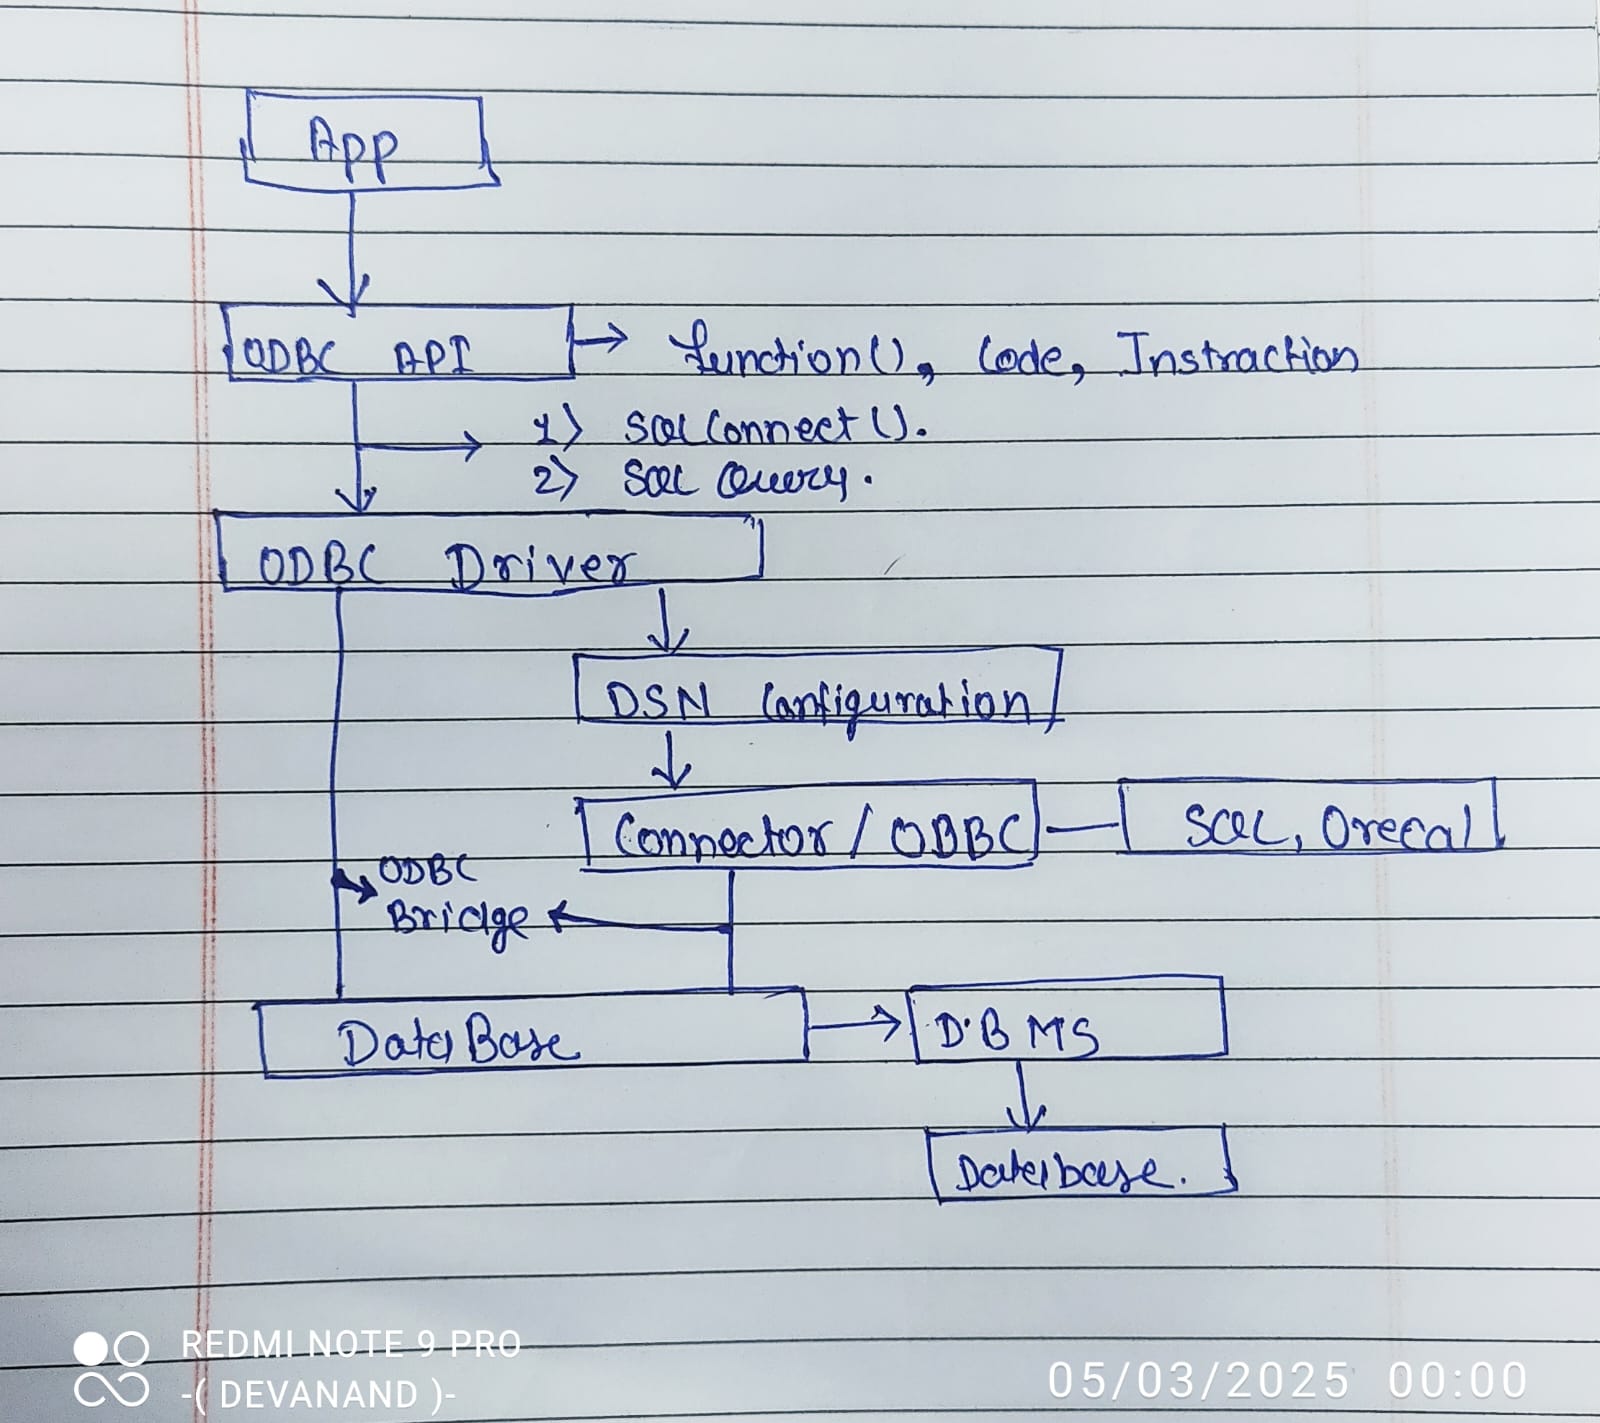 App
ODBC API → function(), Code, Instraction
1) SQL Connect ().
2) SQL Query.
ODBC Driver
DSN Configuration
Connector / ODBC
SQL, Orecall
ODBC
Bridge
DataBase
D.B MS
Database.
REDMI NOTE 9 PRO
-( DEVANAND )-
05/03/2025 00:00